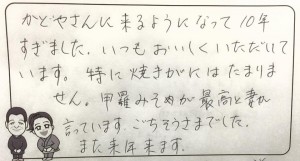 かどやさんに来るようになって10年
すぎました。いつもおいしくいただいて
います。特に焼きがにはたまりま
せん。甲羅みそめが最高と妻が
言っています。ごちそうさまでした。
また来年来ます。